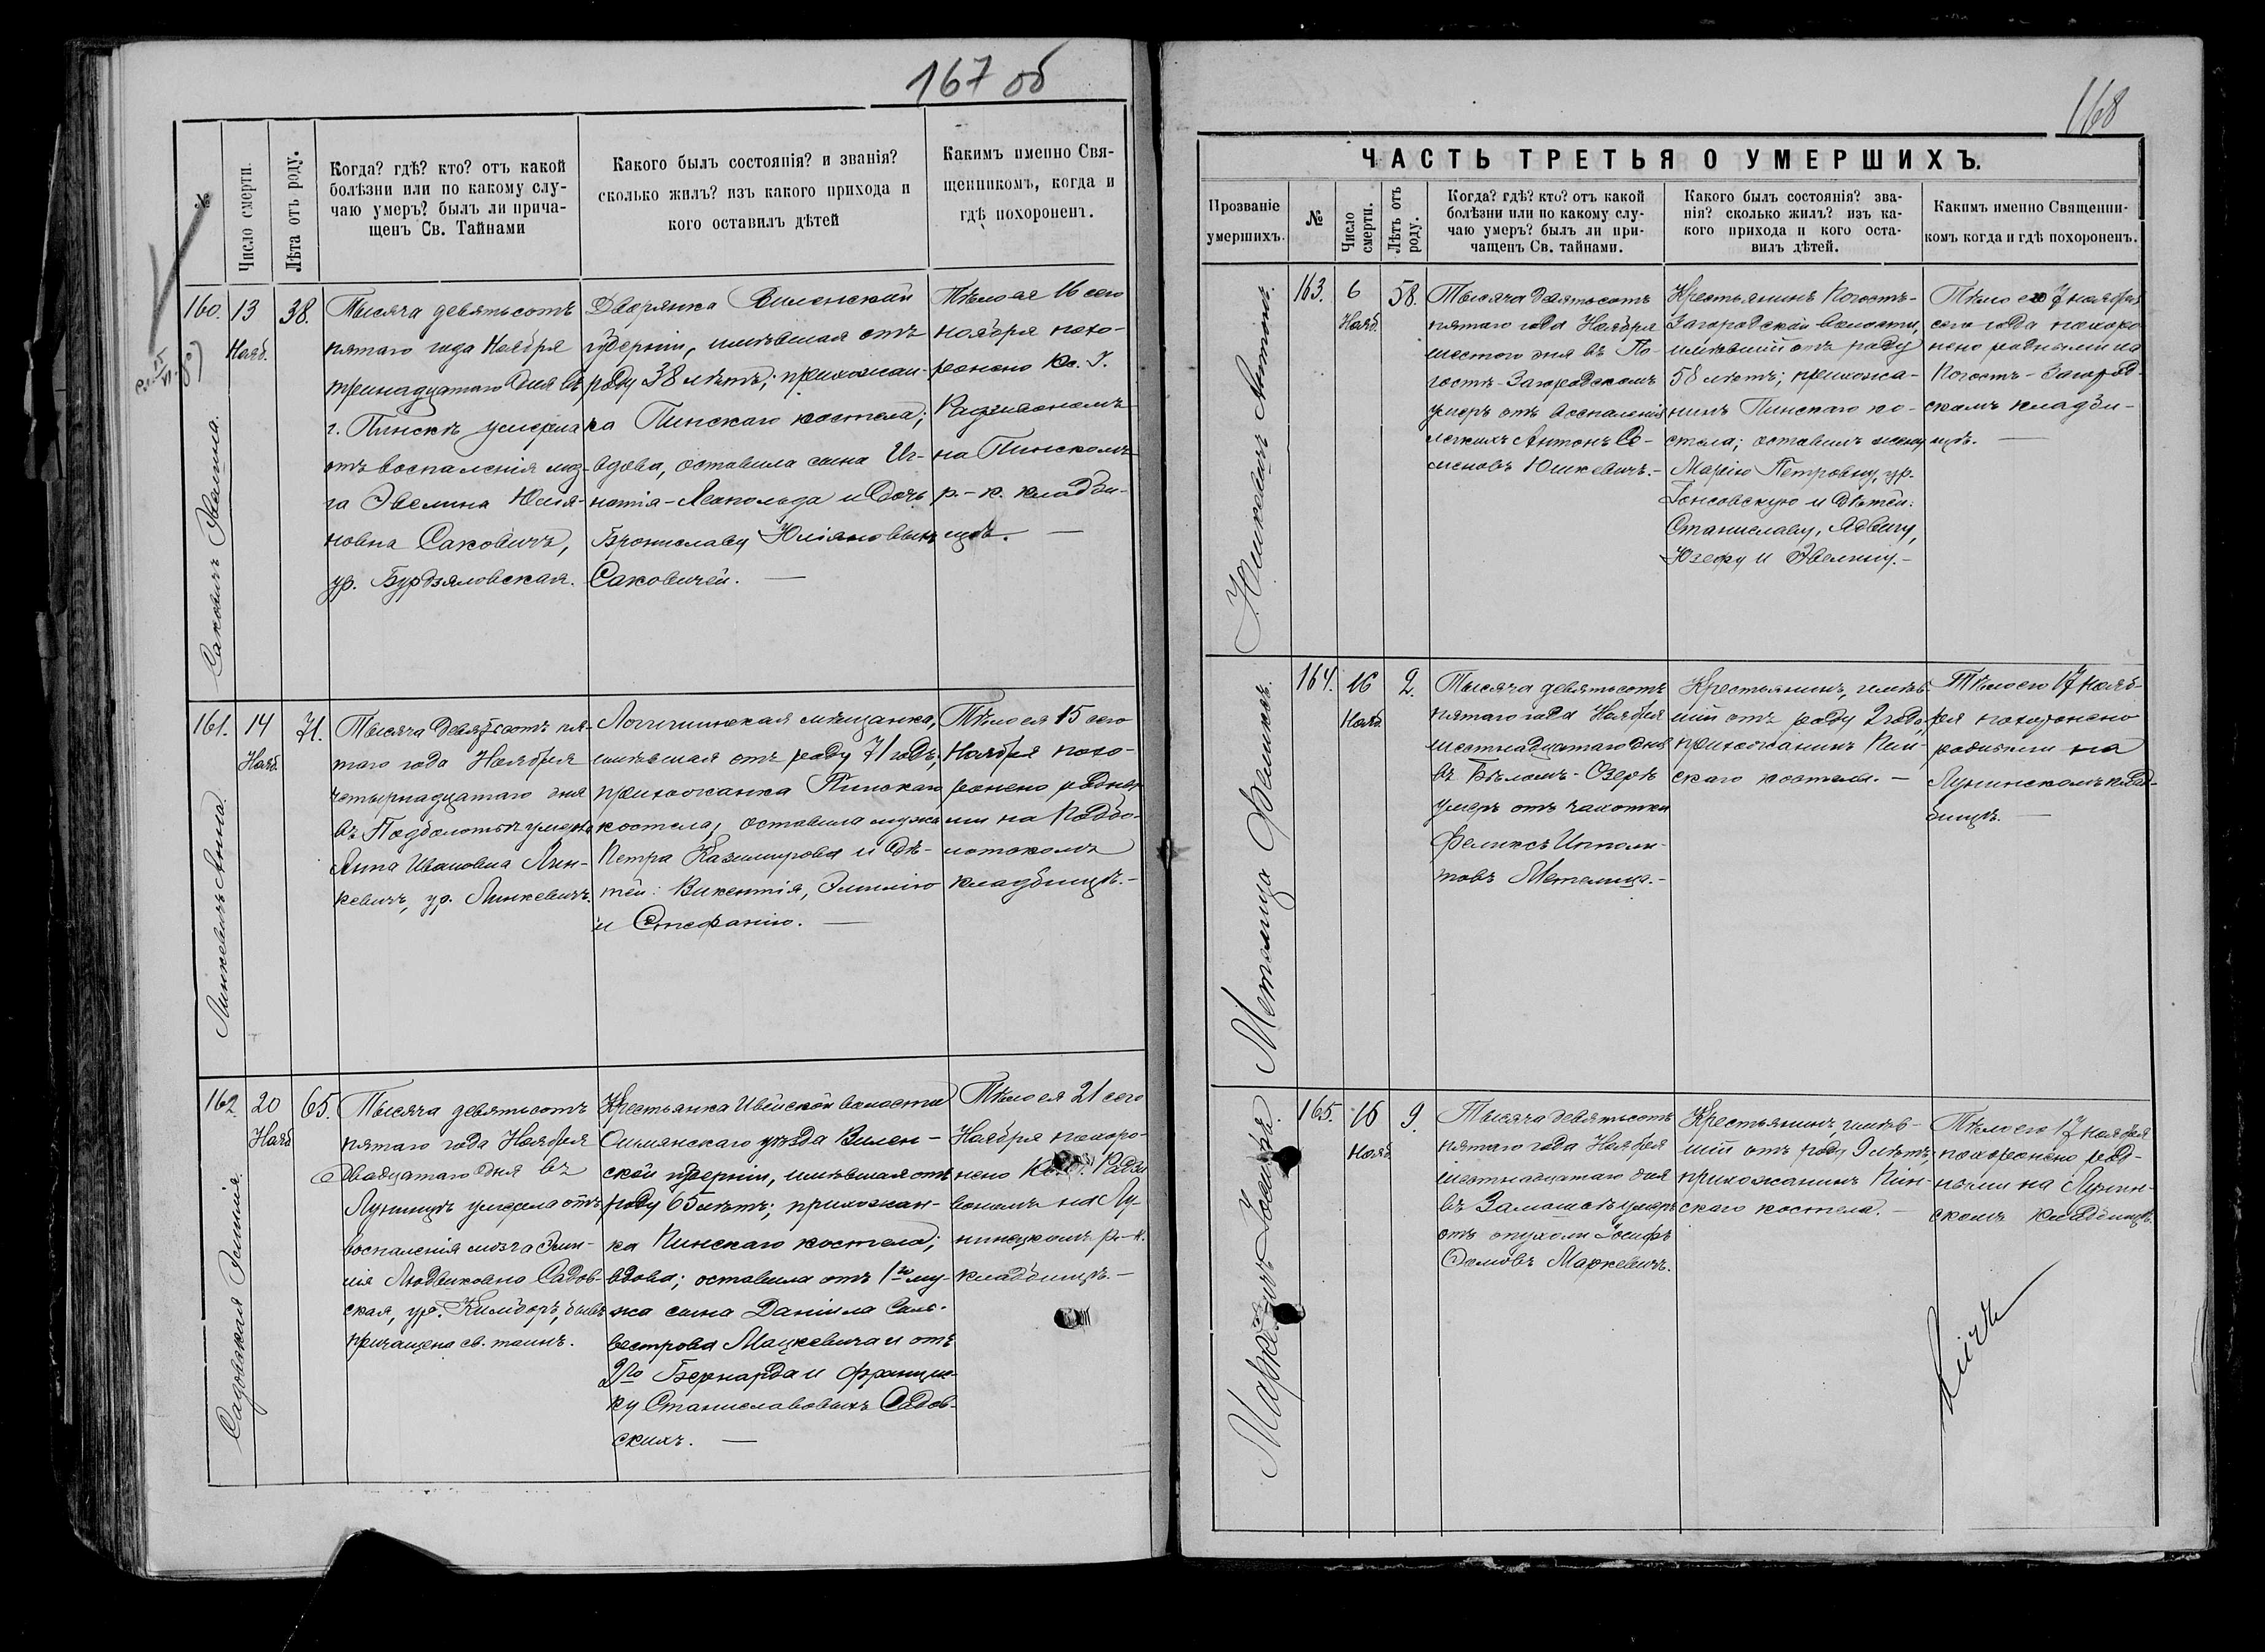 167 об
№
Число смерти.
Лѣта отъ роду.
Когда? гдѣ? кто? отъ какой
болѣзни или по какому слу-
чаю умеръ? былъ ли прича-
щенъ Св. Тайнами
Какого былъ состоянія? и званія?
сколько жилъ? изъ какого прихода и
кого оставилъ дѣтей
Какимъ именно Свя-
щенникомъ, когда и
гдѣ похороненъ.
Саковичъ Эвелина.
160.
13
Нояб.
38.
Тысяча девятьсотъ
пятаго года Ноября
тринадцатаго дня въ
г. Пинскѣ умерла
отъ воспаленія моз-
га Эвелина Юлія-
новна Саковичъ,
ур. Бурдзяловская.
Дворянка Виленской
губерніи, имѣвшая отъ
роду 38 лѣтъ; прихожан-
ка Пинскаго костела;
вдова, оставила сына Иг-
натія-Леопольда и дочь
Брониславу Юліановыхъ
Саковичей. —
Тѣло ея 16 сего
ноября похо-
ронено Кс. І.
Радзивономъ
на Пинскомъ
р.-к. кладби-
щѣ. —
Линкевичъ Анна.
161.
14
Нояб.
71.
Тысяча девятьсотъ пя-
таго года Ноября
четырнадцатаго дня
въ Подболотьѣ умерла
Анна Ивановна Лин-
кевичъ, ур. Линкевичъ.
Логишинская мѣщанка,
имѣвшая отъ роду 71 годъ,
прихожанка Пинскаго
костела; оставила мужа
Петра Казимирова и дѣ-
тей: Викентія, Эмилію
и Стефанію. —
Тѣло ея 15 сего
Ноября похо-
ронено родны-
ми на Подбо-
лотскомъ
кладбищѣ. —
Садовская Эмилія.
162.
20
Нояб.
65.
Тысяча девятьсотъ
пятаго года Ноября
двадцатаго дня въ
Лунинцѣ умерла отъ
воспаленія мозга Эми-
лія Людвиковна Садов-
ская, ур. бывъ
причащена св. таинъ.
Крестьянка Ивейской волости
Ошмянскаго уѣзда Вилен-
ской губерніи, имѣвшая отъ
роду 65 лѣтъ; прихожан-
ка Пинскаго костела;
вдова; оставила отъ 1го му-
жа сына Даніила Силь-
вестрова Мацкевича и отъ
2го Бернарда и Францис-
ку Станиславовыхъ Садов-
скихъ. —
Тѣло ея 21 сего
Ноября похоро-
нено Радзи
вономъ на Лу-
нинецкомъ р.-к.
кладбищѣ. —
168
ЧАСТЬ ТРЕТЬЯ О УМЕРШИХЪ.
Прозваніе
умершихъ.
№
Число
смерти.
Лѣтъ отъ
роду.
Когда? гдѣ? кто? отъ какой
болѣзни или по какому слу-
чаю умеръ? былъ ли при-
чащенъ Св. тайнами.
Какого былъ состоянія? зва-
нія? сколько жилъ? изъ ка-
кого прихода и кого оста-
вилъ дѣтей.
Какимъ именно Священни-
комъ когда и гдѣ похороненъ.
Юшкевичъ Антонъ.
163.
6
Нояб.
58.
Тысяча девятьсотъ
пятаго года Ноября
шестого дня въ По-
гостѣ-Загородскомъ
умеръ отъ воспаленія
легкихъ Антонъ
Юшкевичъ. —
Крестьянинъ Погостъ-
Загородской волости,
имѣвшій отъ роду
58 лѣтъ; прихожа-
нинъ Пинскаго ко-
стела; оставилъ жену
Марію Петровну, ур.
Гонсовскую и дѣтей:
Станиславу, Ядвигу,
Юзефу и Эвелину. —
Тѣло его 7 ноября
сего года похоро
нено родными на
Погостъ-Загород-
скомъ кладби-
щѣ. —
Метелица Феликсъ.
164.
16
Нояб.
2.
Тысяча девятьсотъ
пятаго года Ноября
шестнадцатаго дня
въ Бѣломъ-Озерѣ
умеръ отъ чахотки
Феликсъ Ипполи-
товъ Метелица. —
Крестьянинъ, имѣв-
шій отъ роду 2 года,
прихожанинъ Пин-
скаго костела. —
Тѣло его 17 Нояб-
ря похоронено
родными на
Лунинскомъ клад-
бищѣ. —
Маркевичъ Іосифъ.
165.
16
Нояб.
9.
Тысяча девятьсотъ
пятаго года Ноября
шестнадцатаго дня
въ Замошьѣ умеръ
отъ опухоли Іосифъ
Адамовъ Маркевичъ.
Крестьянинъ, имѣв-
шій отъ роду 9 лѣтъ;
прихожанинъ Пин-
скаго костела. —
Тѣло его 17 ноября
похоронено род-
ными на Лунин-
скомъ кладбищѣ.